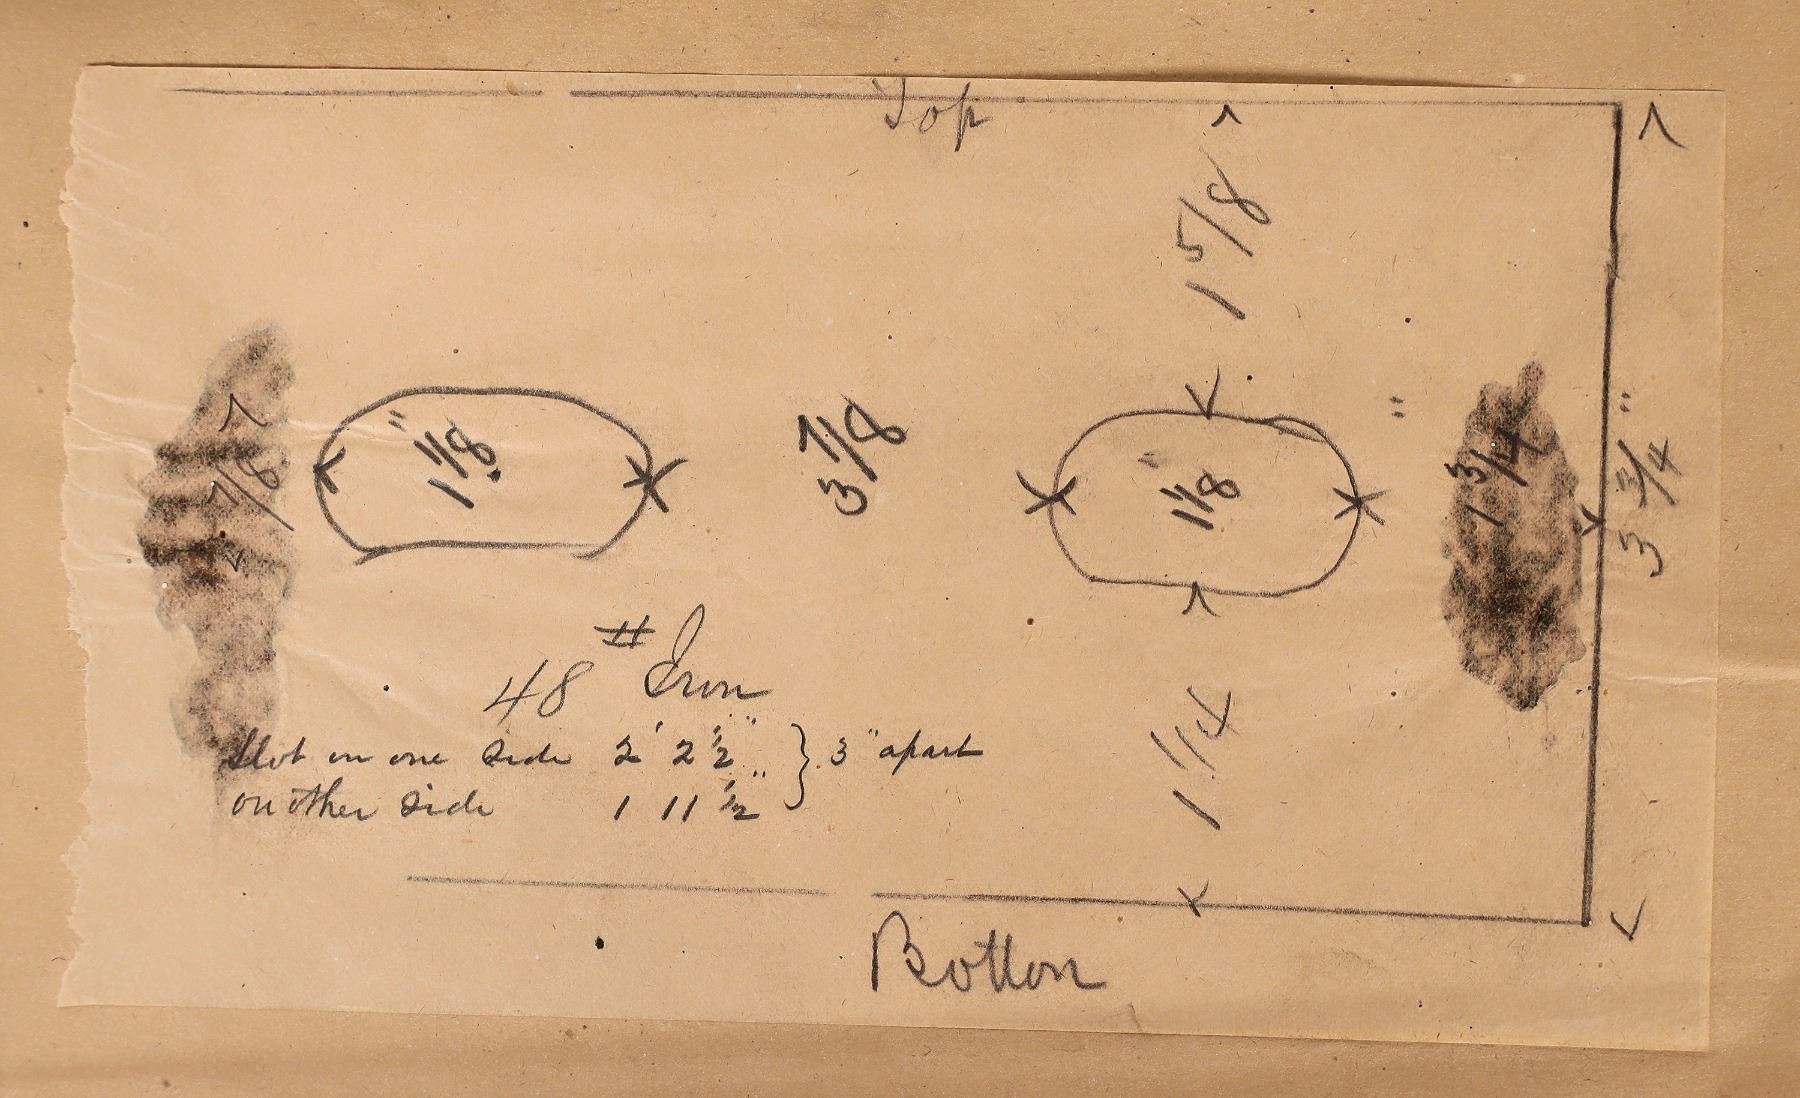 Top
1 5/8
7/8
1 1/8"
3 7/8
1 1/8"
1 3/4"
3 3/4"
48 # Iron
Slot on one side 2' 2 1/2" } 3" apart
on other side 1 11 1/2"
1 1/4
Botton